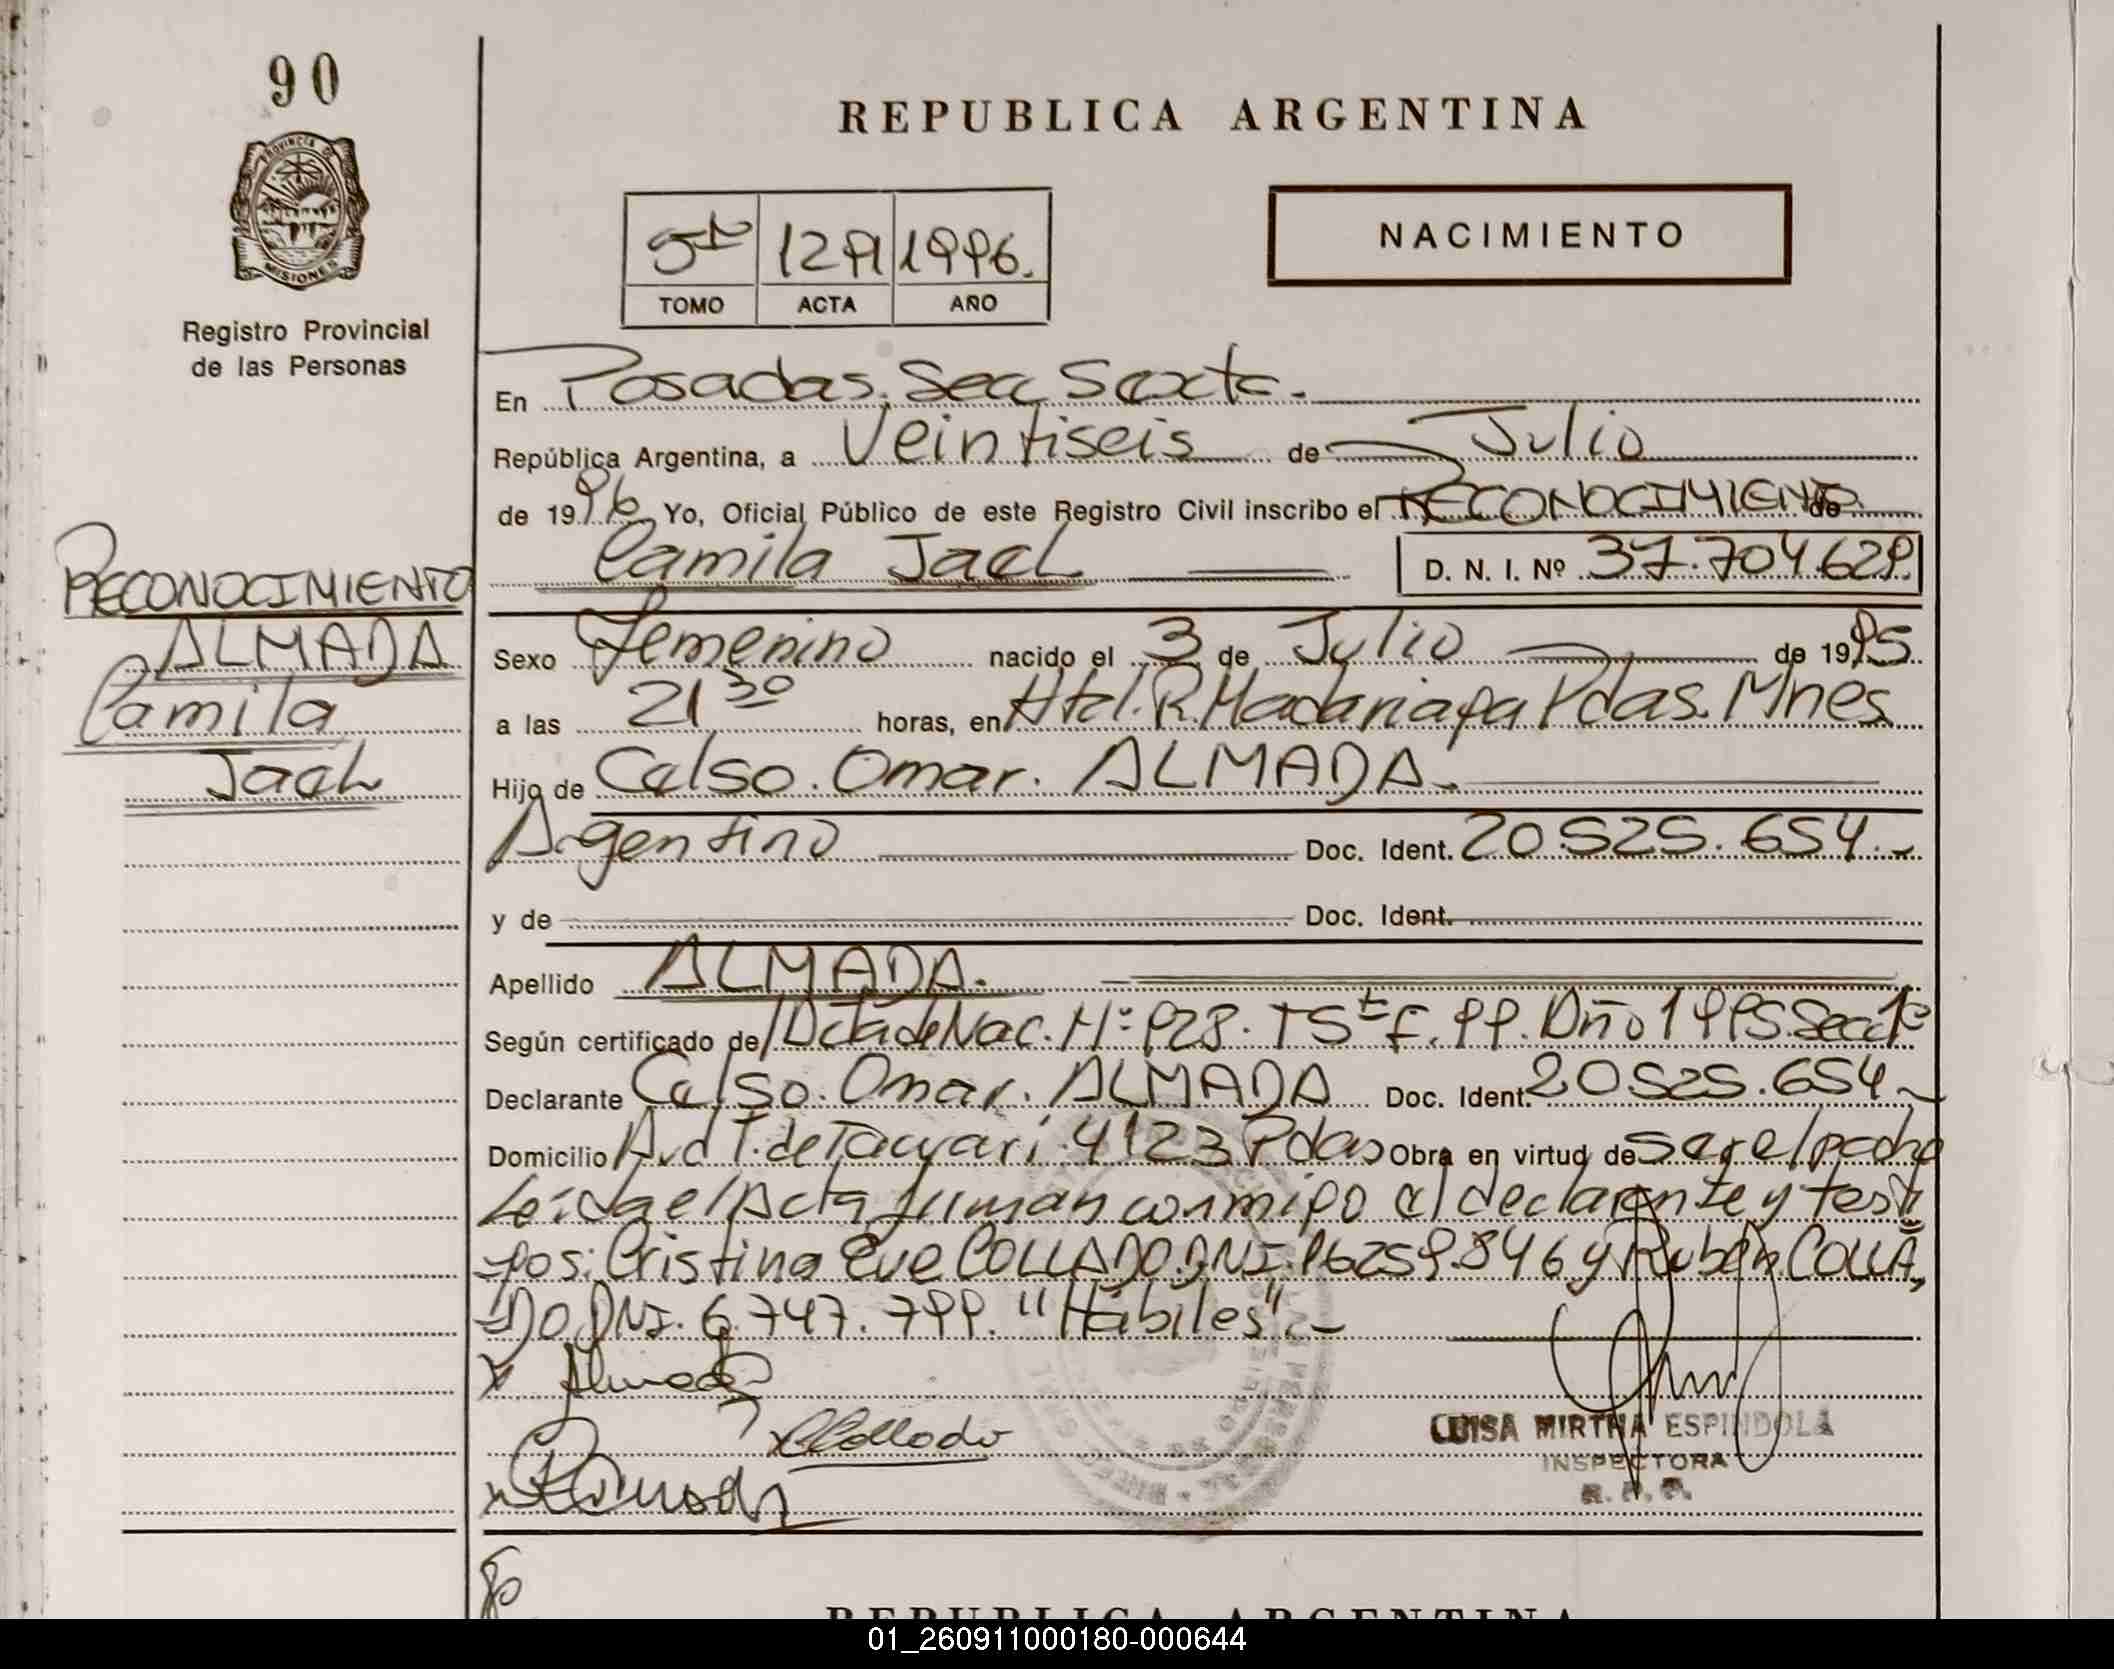 90
REPUBLICA ARGENTINA
PROVINCIA DE
MISIONES
Registro Provincial
de las Personas
NACIMIENTO
5to 1291 1996.
TOMO ACTA AÑO
En Posadas. Secc Sexta.
República Argentina, a Veintiseis de Julio
de 1996 Yo, Oficial Público de este Registro Civil inscribo el RECONOCIMIENTO de
Camila Jael D. N. I. Nº 37.704.629.
RECONOCIMIENTO
ALMADA
Camila
Jael
Sexo Femenino nacido el 3 de Julio de 1995
a las 21 30 horas, en Htal. R. Madariaga Pdas. Mnes
Hijo de Celso. Omar. ALMADA.
Argentino Doc. Ident. 20.525.654.-
y de Doc. Ident.
Apellido ALMADA.
Según certificado de Acta de Nac. Nº 928. T 5to F. 99. Año 1995 Secc 1º
Declarante Celso. Omar. ALMADA Doc. Ident. 20.525.654-
Domicilio Avd T. de Tacuari 4123 Pdas Obra en virtud de ser el padre
Leída el Acta firman conmigo el declarante y testi
-gos: Cristina Eve COLLADO. DNI. 16259.846 y Ruben COLLA,
-DO. DNI. 6.747.799. "Hábiles".-
x Almada
x CCollado
x
LUISA MIRTHA ESPINDOLA
INSPECTORA
R. P. P.
REPUBLICA ARGENTINA
01_260911000180-000644